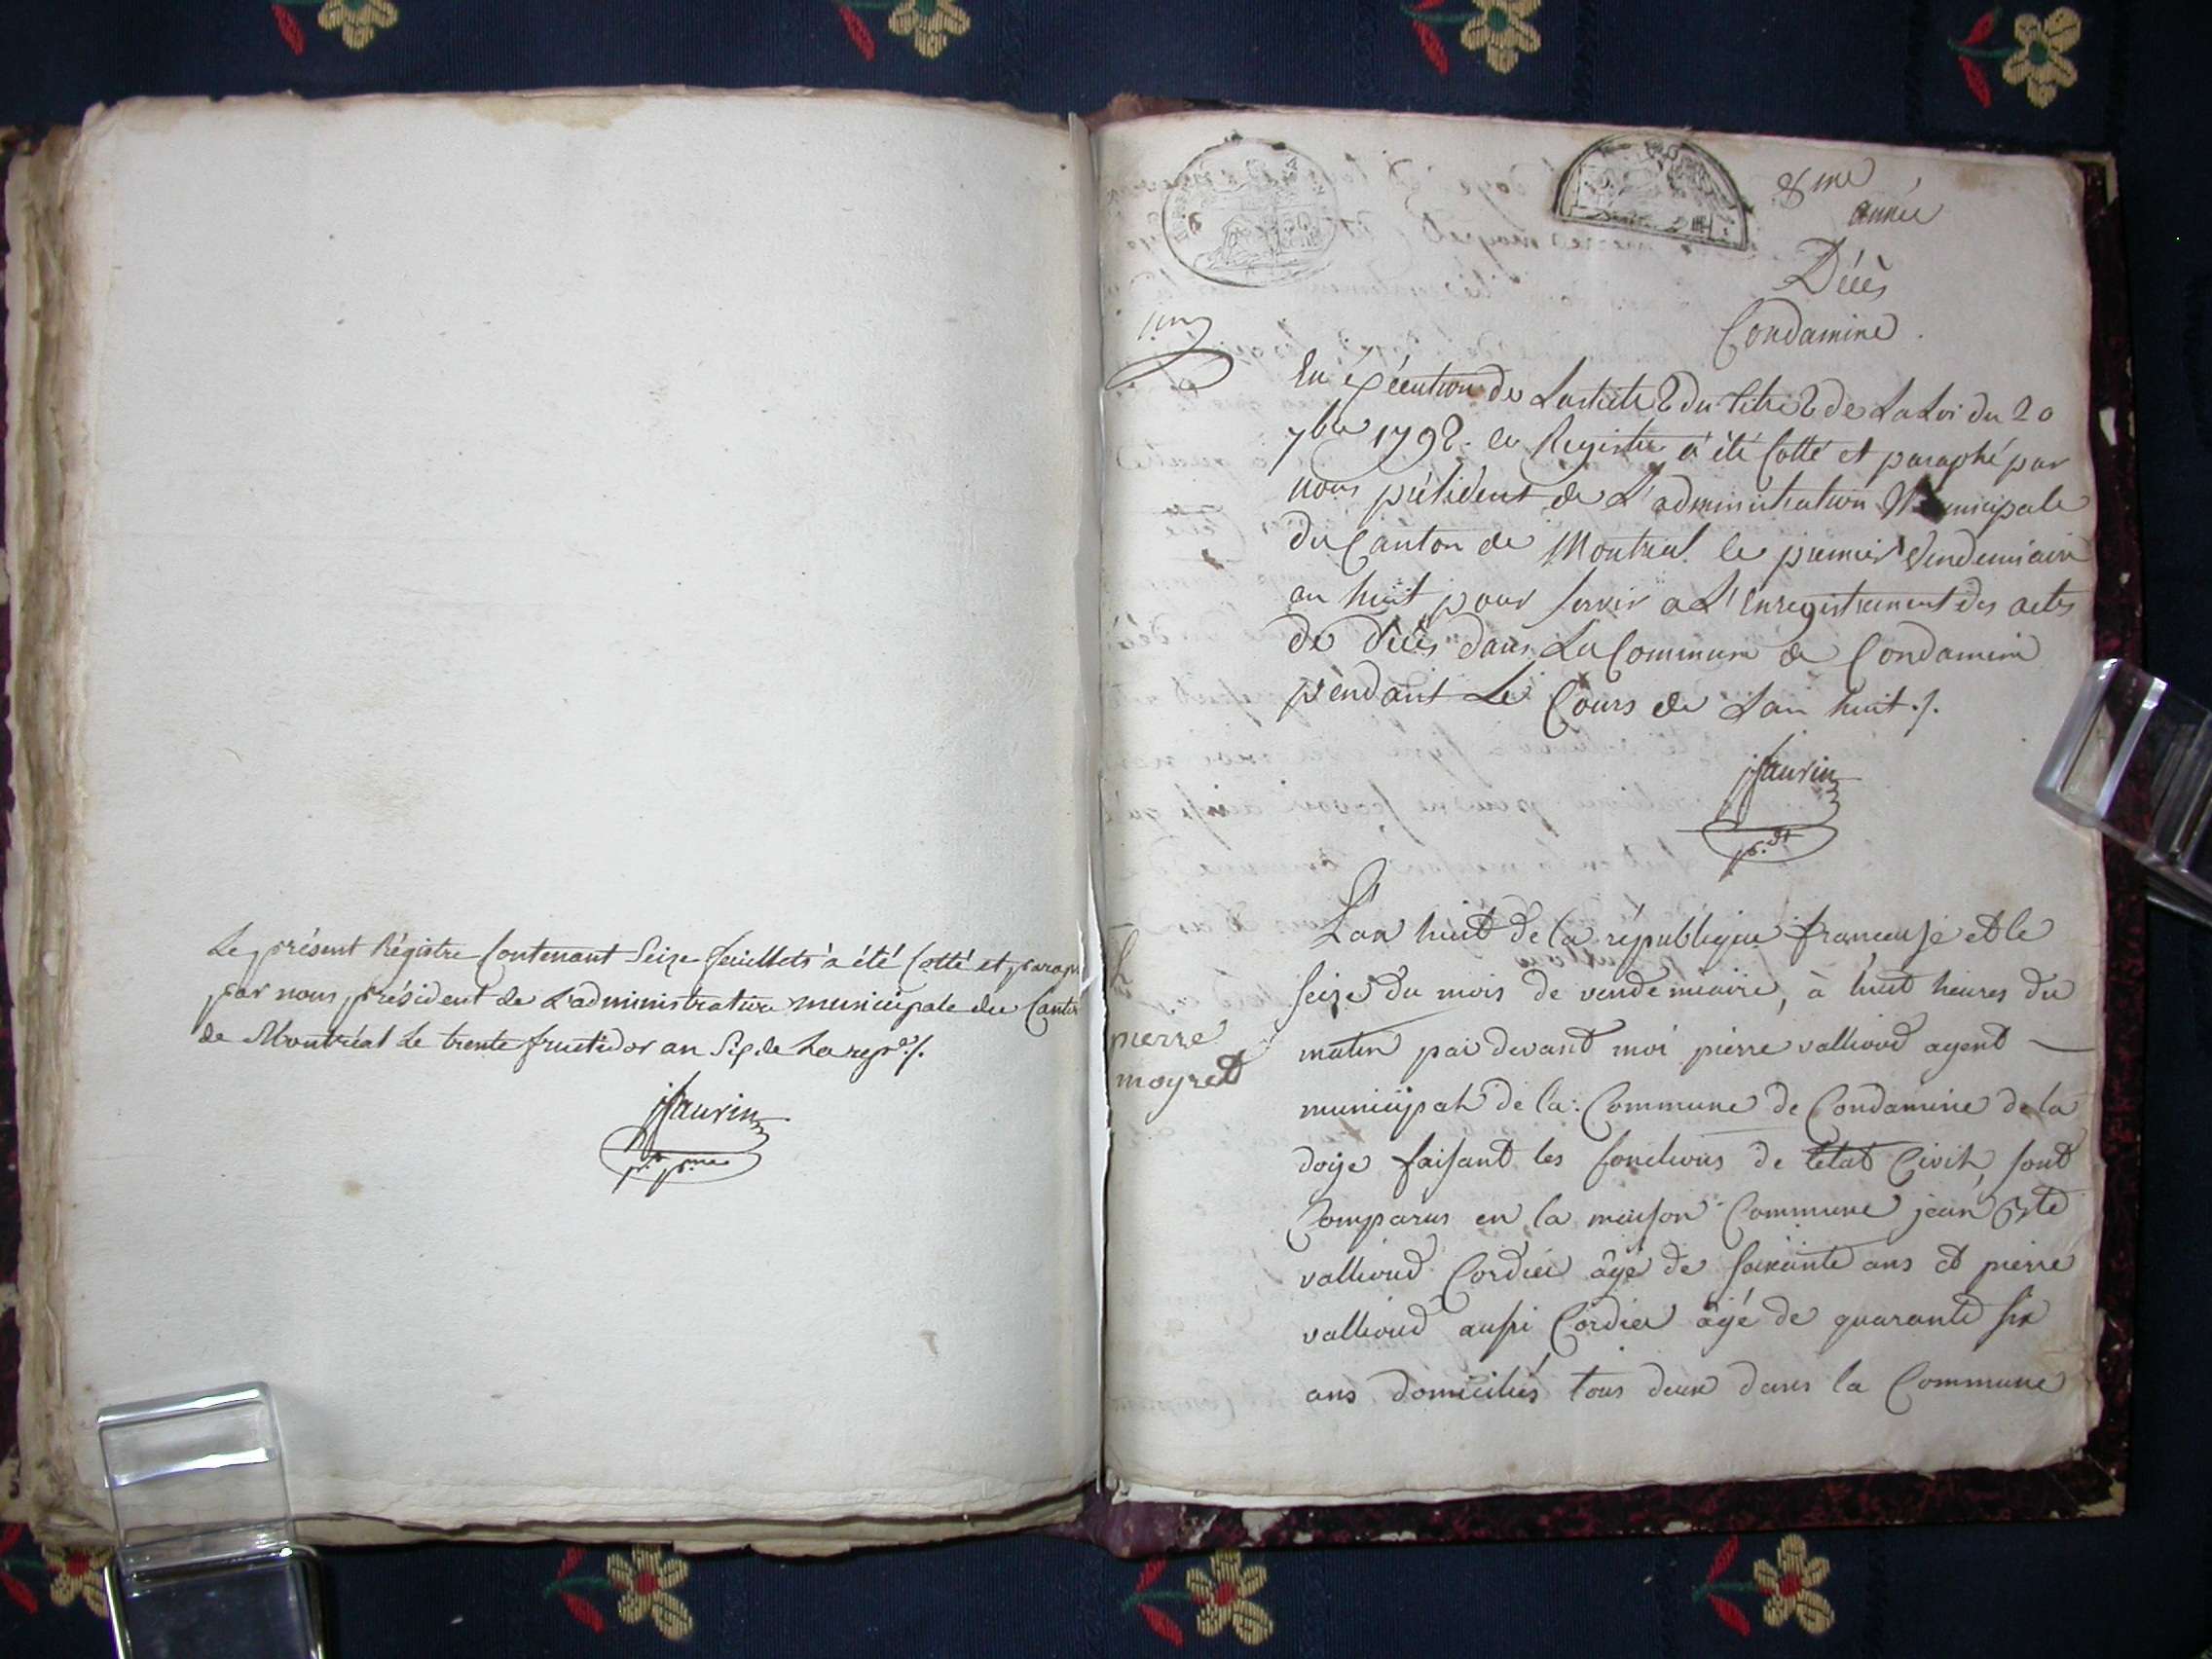 Le présent Régistre Contenant Seize feuillets a été Cotté et parap
par nous président de L'administration municipale du Canton
de Montréal Le trente fructidor an Six de La repe./.
jSaurin
8me
année
Décès
Condamine.
1er
En éxécution de L'article 2 du titre 2 de La Loi du 20
7bre 1792. ce Registre a été Cotté et paraphé par
nous président de L'administration Municipale
du Canton de Montreal le premier Vendemiaire
an huit pour servir a L'Enregistrement des actes
de Décès dans La Commune de Condamine
pendant Le Cours de L'an huit ./.
jSaurin
p.dt
L'an huit de la république francaise et le
seize du mois de vendemiaire, à huit heures du
matin par devant moi pierre vallioud agent
pierre
moyret
municipal de la Commune de Condamine de la
doye faisant les fonctions de létat Civil, sont
Comparus en la maison Commune jean Bte
vallioud Cordier âgé de soixante ans et pierre
vallioud aussi Cordier agé de quarante six
ans domiciliés tous deux dans la Commune